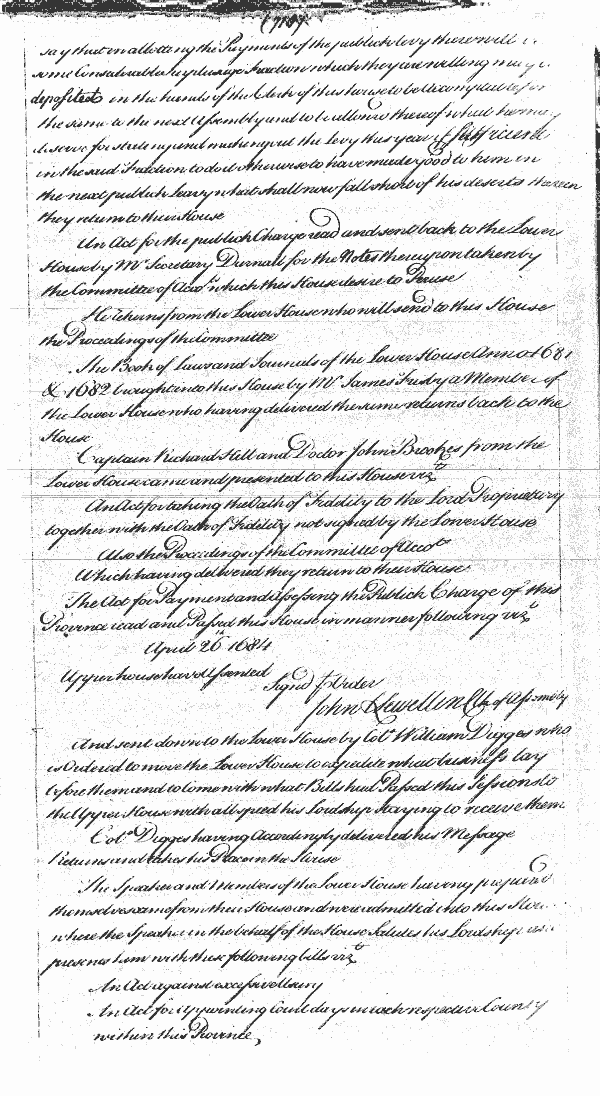 say that in allotting the Payments of the publick levy there will
some Considerable Surplusage Fraction which they are willing may
deposited in the hands of the Clerk of this house to be accomptable for
the same to the next Assembly and to be allowed thereof what he may
deserve for stating and making out the Levy this year if sufficient
in the said Fraction to do it otherwise to have made good to him in
the next publick Leavy what shall now fall short of his deserts therein
they return to their House
An Act for the publick Charge read and sent back to the Lower
House by Mr Secretary Darnall for the Notes thereupon taken by
the Committee of Accots which this House desire to Peruse
He returns from the Lower House who will send to this House
the Proceedings of the Committee
The Book of Laws and Journals of the Lower House Anno 1681
& 1682 brought into this House by Mr James Frisby a Member of
the Lower House who having delivered the same returns back to the
House
Captain Richard Hill and Doctor John Brookes from the
Lower House came and presented to this House vizt
An Act for taking the Oath of Fidelity to the Lord Proprietary
together with the Oath of Fidelity not signed by the Lower House
Also the Proceedings of the Committee of Accots
Which having delivered they return to their House
The Act for Payment and Assessing the Publick Charge of this
Province read and Passed this House in manner following vizt
April 26th 1684
Upper house have Assented
Signd p Order
John Llewellin Clk of Assembly
And sent down to the Lower House by Colo William Digges who
is Ordered to move the Lower House to expedite what business lay
before them and to come with what Bills had Passed this Sessions to
the Upper House with all speed his Lordship staying to receive them
Colo Digges having Accordingly delivered his Message
Returns and takes his Place in the House
The Speaker and Members of the Lower House having prepared
themselves came from their House and were admitted into this House
where the Speaker in the behalf of the House Salutes his Lordship and
presents him with these following bills vizt
An Act against excessive Usury
An Act for appointing Court days in each respective County
within this Province,